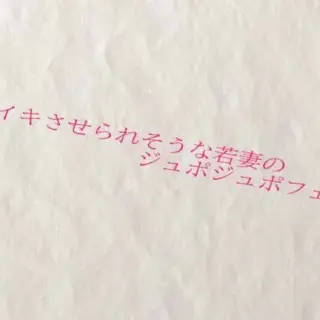 イキさせられそうな若妻の
ジュポジュポフェ